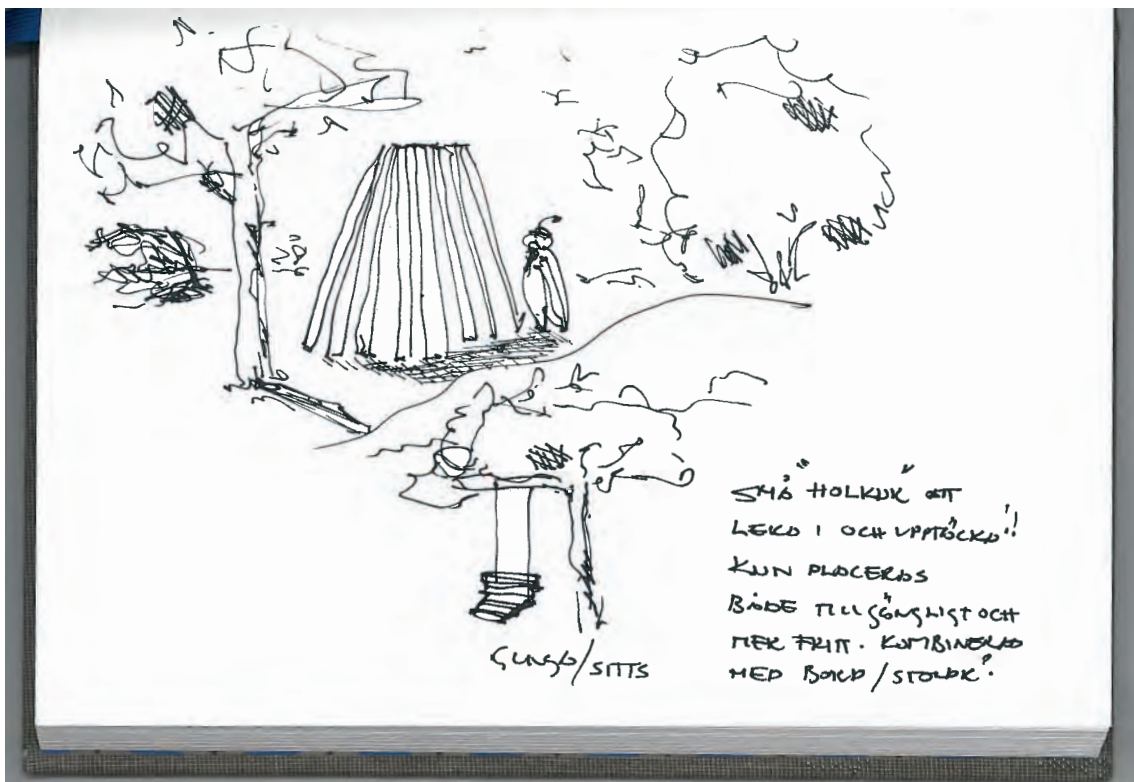 GUNGA/SITTS
SMÅ "HOLKAR" ATT
LEKA I OCH UPPTÄCKA!!
KAN PLACERAS
BÅDE TILLGÄNGLIGT OCH
MER FRITT. KOMBINERAD
MED BORD/STOLAR?